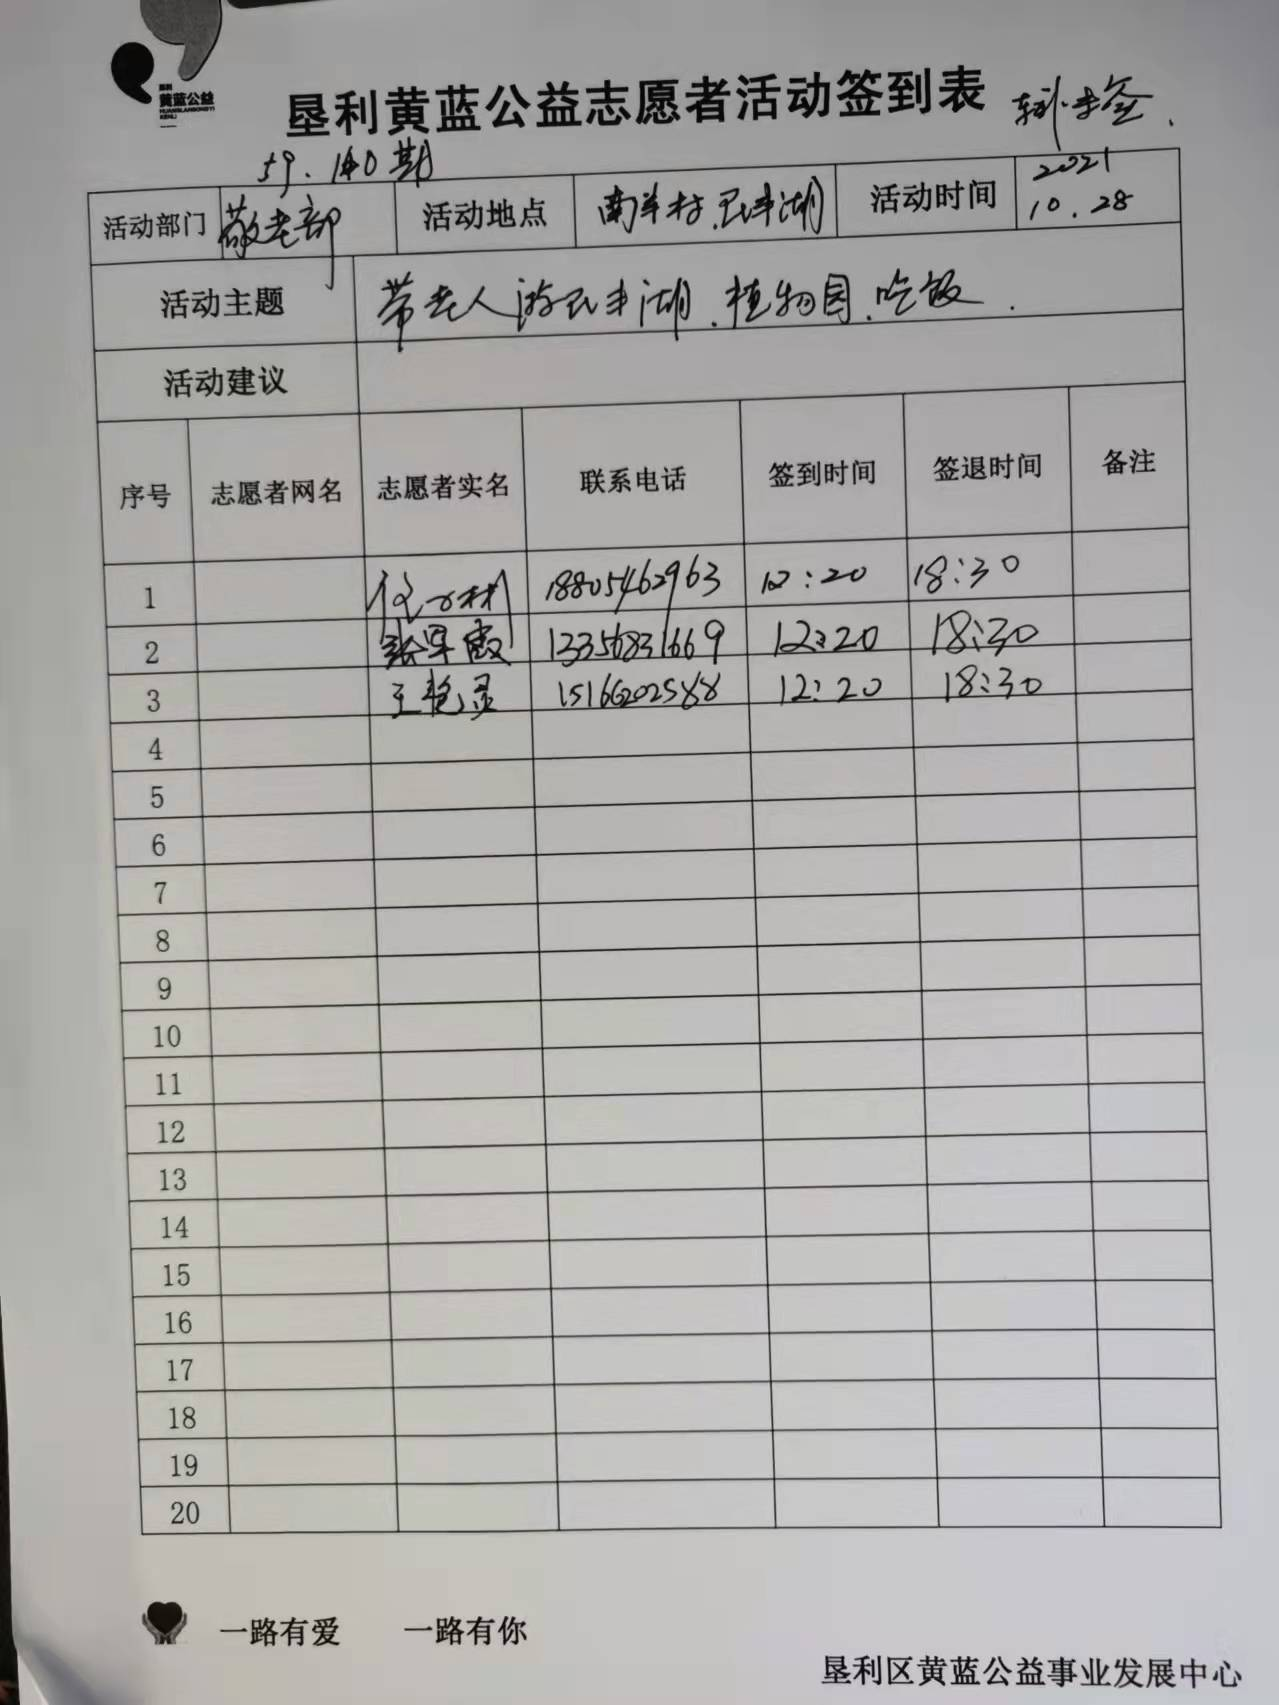 垦利
黄蓝公益
HUANGLANGONGYI
KENLI
垦利黄蓝公益志愿者活动签到表
59.140期
活动部门 敬老部 活动地点 南羊村.民丰湖 活动时间 2021
10.28
活动主题 带老人游民丰湖.植物园.吃饭.
活动建议
序号 志愿者网名 志愿者实名 联系电话 签到时间 签退时间 备注
1 18805462963 12:20 18:30
2 张军霞 13356831669 12:20 18:30
3 王艳灵 15166202588 12:20 18:30
4
5
6
7
8
9
10
11
12
13
14
15
16
17
18
19
20
一路有爱 一路有你
垦利区黄蓝公益事业发展中心